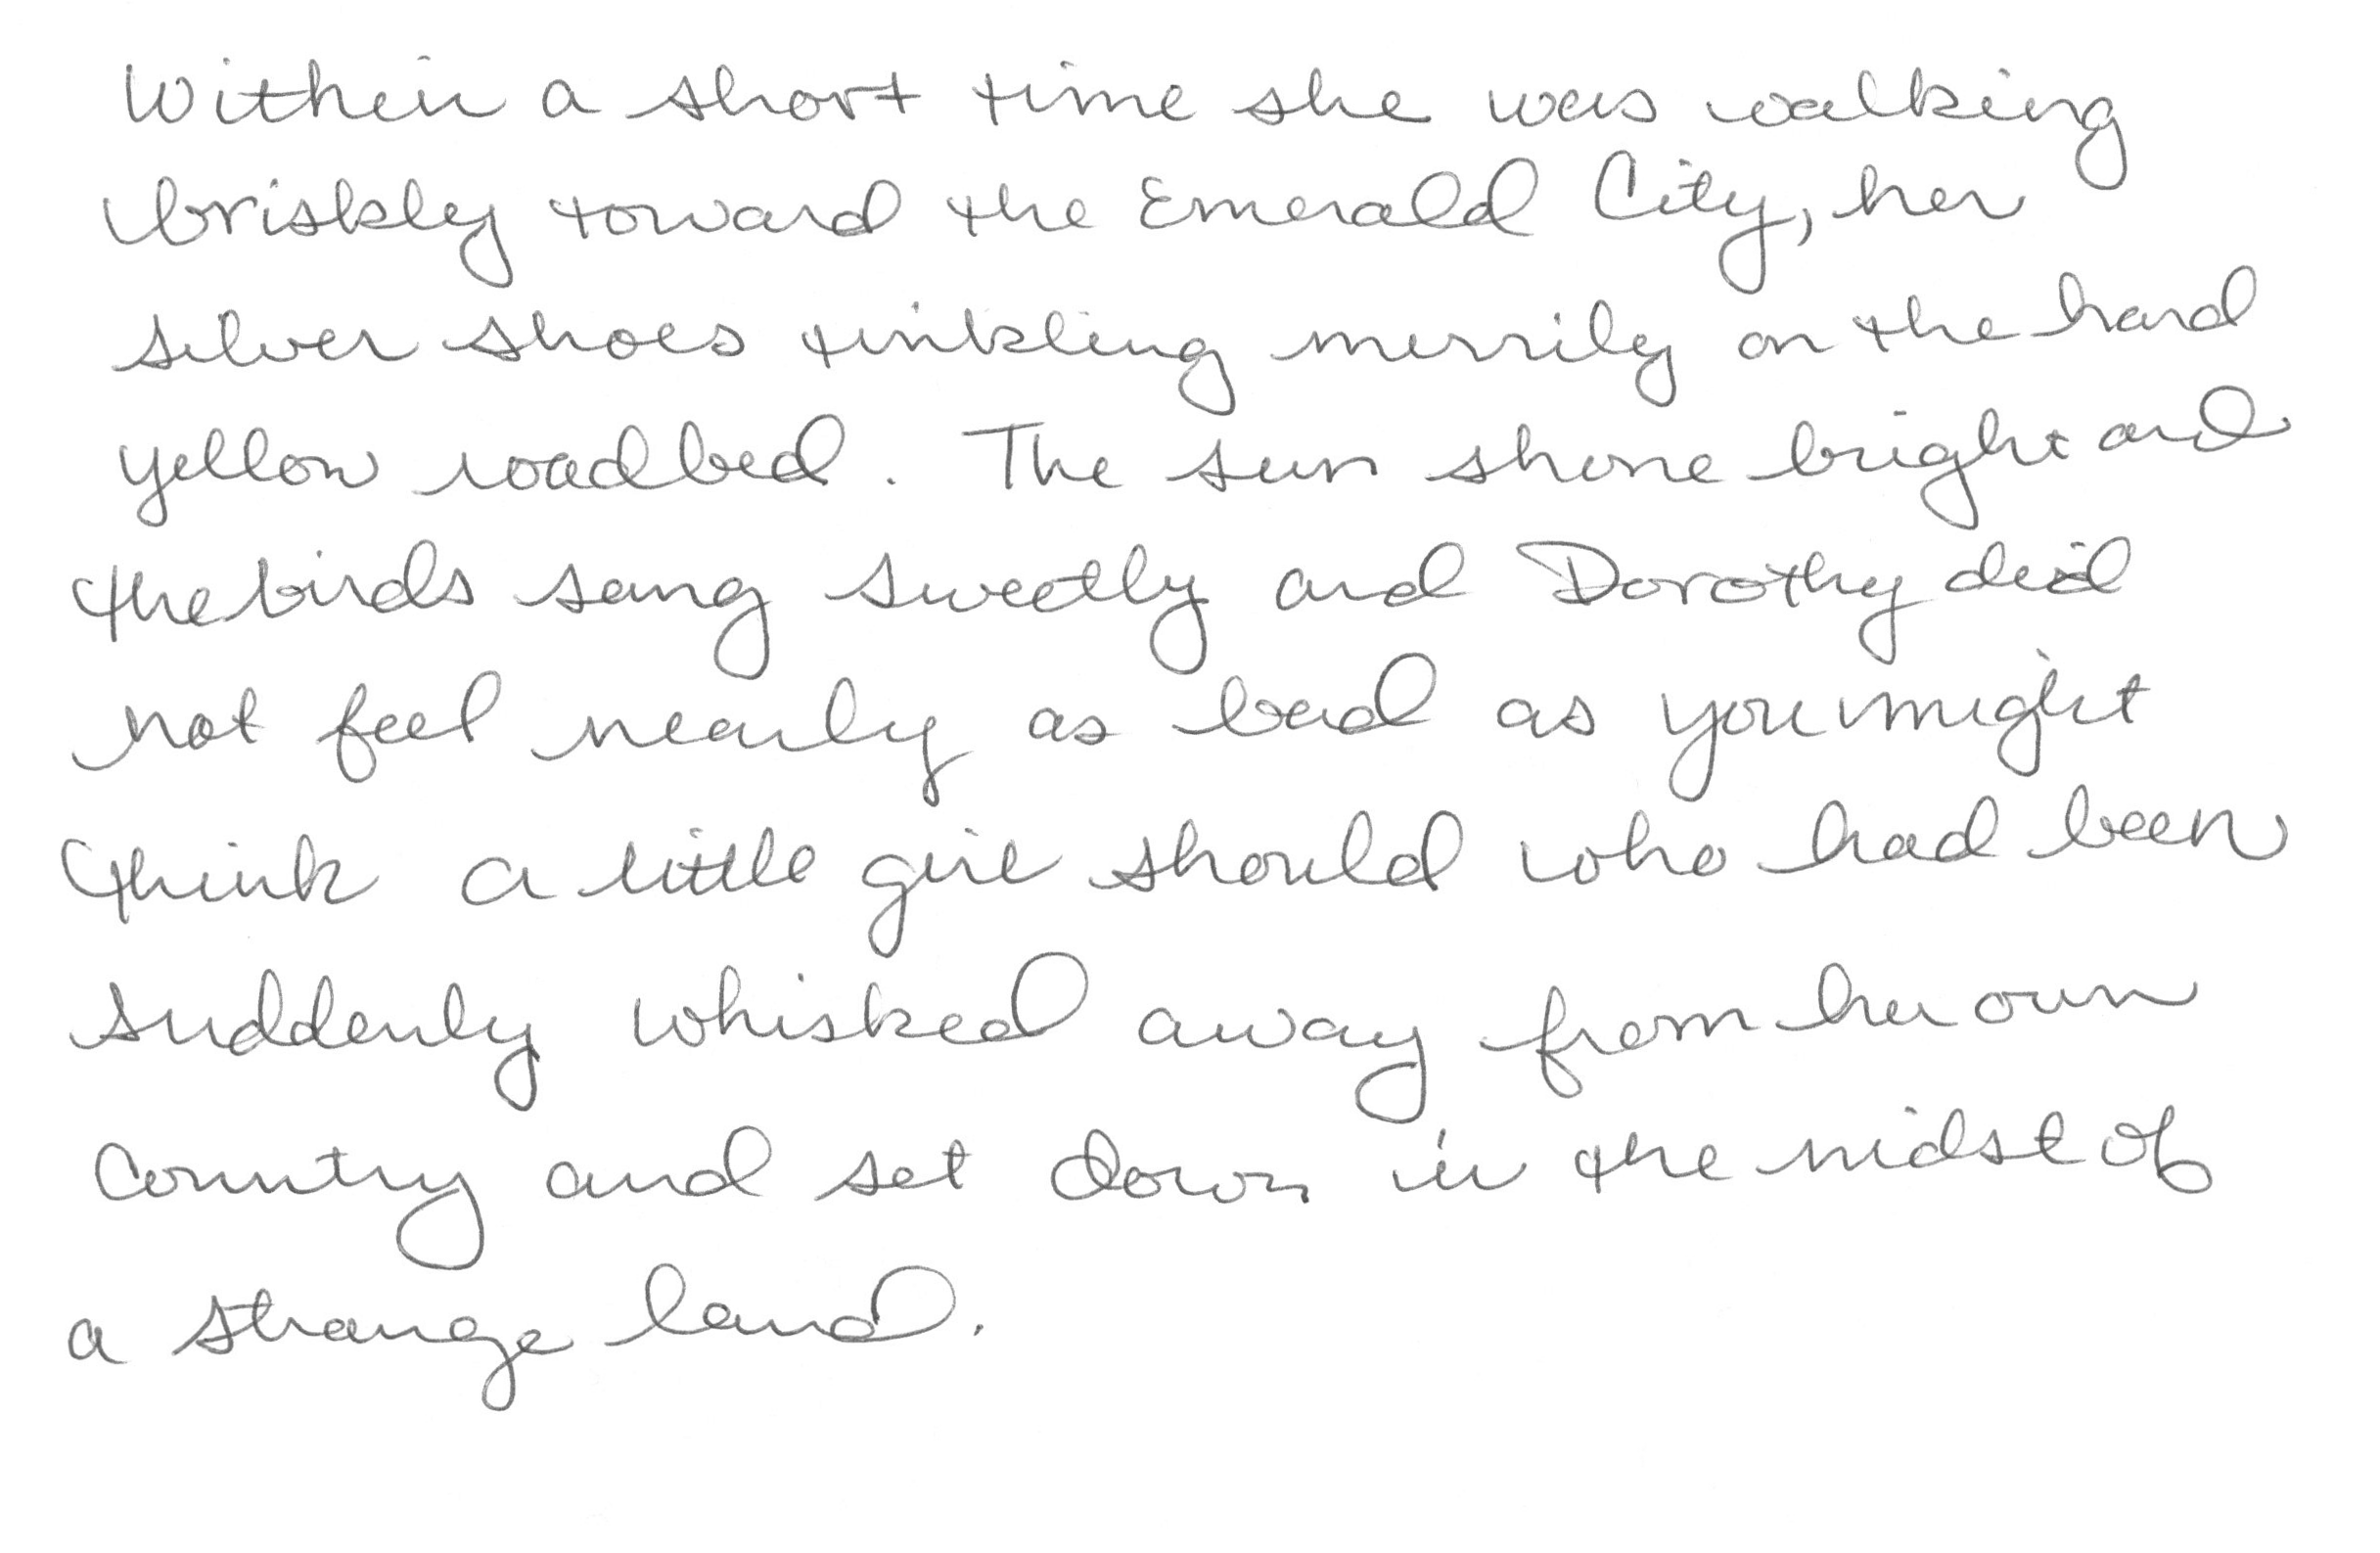 Within a short time she was walking
briskly toward the Emerald City, her
silver shoes tinkling merrily on the hard
yellow roadbed. The sun shone bright and
the birds sang sweetly and Dorothy did
not feel nearly as bad as you might
think a little girl should who had been
suddenly whisked away from her own
country and set down in the midst of
a strange land.